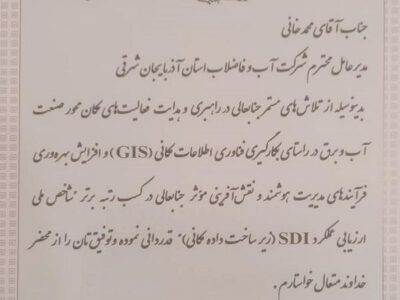 جناب آقای محمدخانی
مدیرعامل محترم شرکت آب و فاضلاب استان آذربایجان شرقی
بدینوسیله از تلاش‌های مستمر جنابعالی در راهبری و هدایت فعالیت‌های مکان محور صنعت
آب و برق در راستای بکارگیری فناوری اطلاعات مکانی (GIS) و افزایش بهره‌وری
فرآیندهای مدیریت هوشمند و نقش‌آفرینی مؤثر جنابعالی در کسب رتبه برتر "شاخص ملی
ارزیابی عملکرد SDI (زیرساخت داده مکانی)" قدردانی نموده و توفیق‌تان را از محضر
خداوند متعال خواستارم.